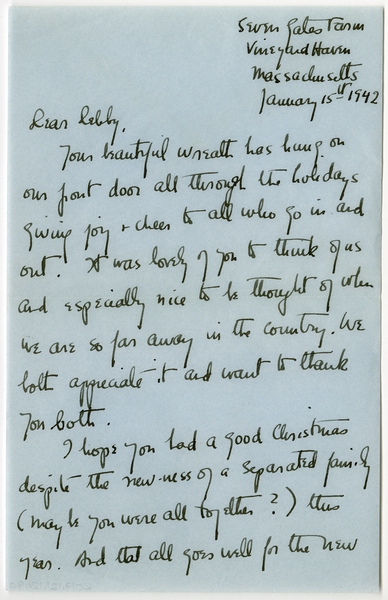 Seven Gates Farm
Vineyard Haven
Massachusetts
January 15th 1942
Dear Debby,
Your beautiful wreath has hung on
our front door all through the holidays
giving joy + cheer to all who go in and
out. It was lovely of you to think of us
and especially nice to be thought of when
we are so far away in the country. We
both appreciate it and want to thank
you both.
I hope you had a good Christmas
despite the new-ness of a separated family
(may be you were all together?) this
year. And that all goes well for the new